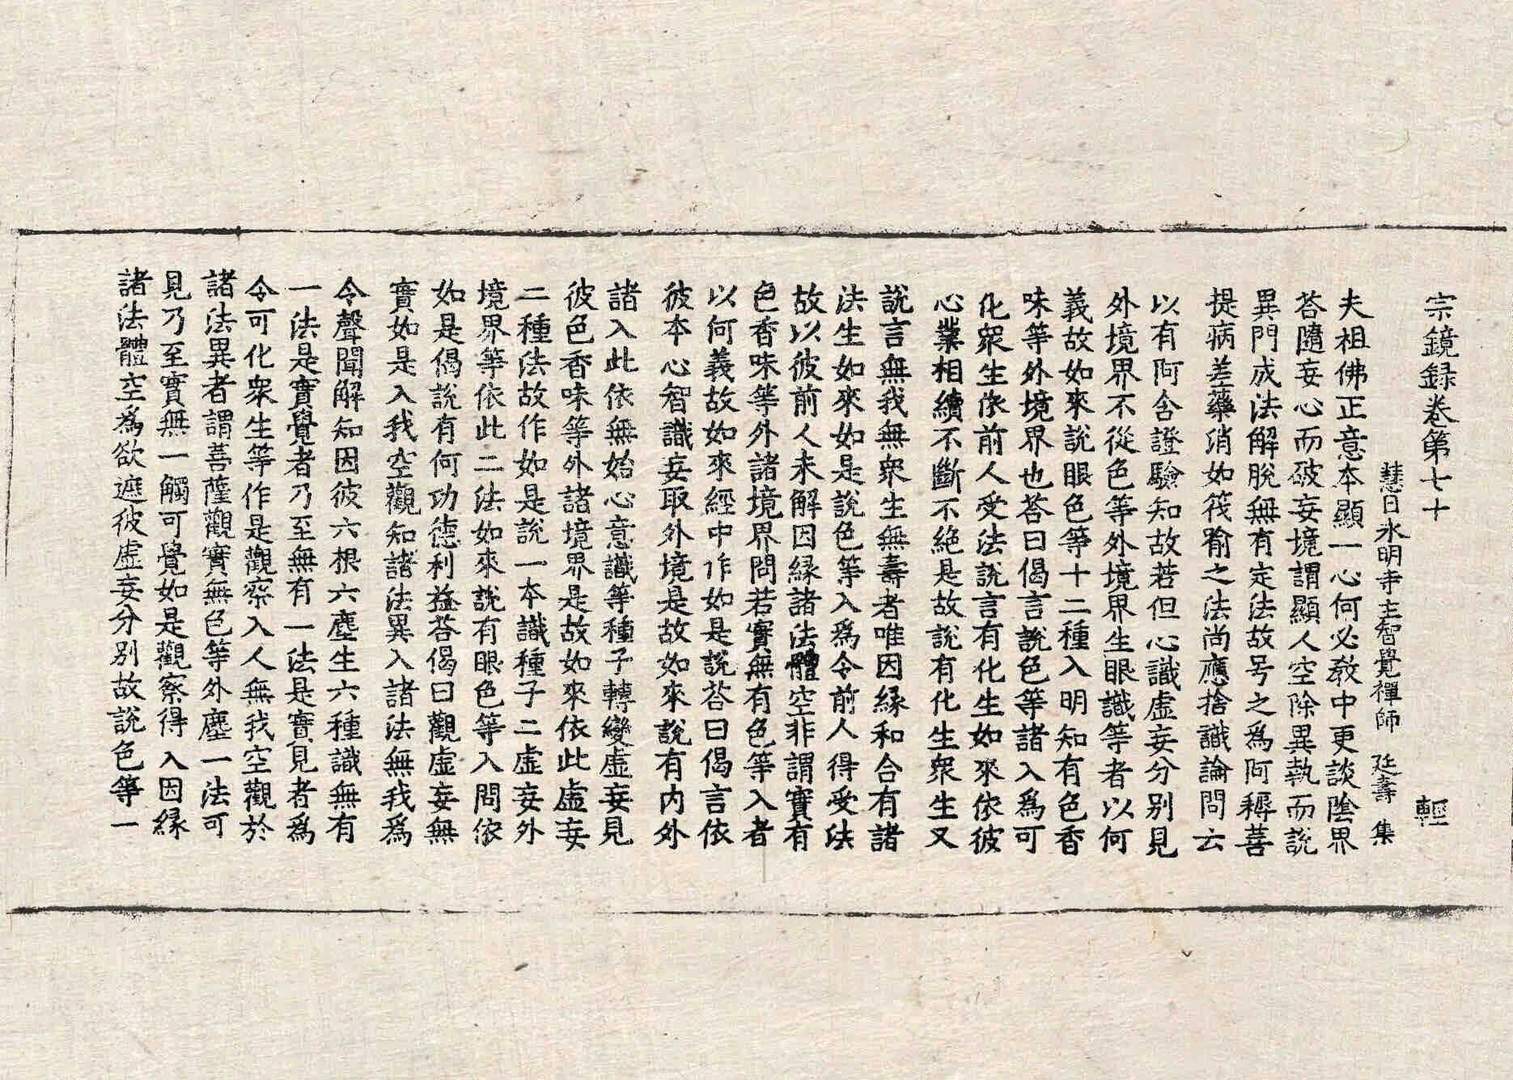 宗鏡録卷第七十 輕
慧日永明寺主智覺禪師 延壽 集
夫祖佛正意本顯一心何必教中更談陰界
荅隨妄心而破妄境謂顯人空除異執而說
異門成法解脫無有定法故号之爲阿耨菩
提病差藥消如筏喻之法尚應捨識論問云
以有阿含證驗知故若但心識虛妄分別見
外境界不從色等外境界生眼識等者以何
義故如來說眼色等十二種入明知有色香
味等外境界也荅曰偈言說色等諸入爲可
化衆生依前人受法說言有化生如來依彼
心業相續不斷不絕是故說有化生衆生又
說言無我無衆生無壽者唯因緣和合有諸
法生如來如是說色等入爲令前人得受法
故以彼前人未解因緣諸法體空非謂實有
色香味等外諸境界問若實無有色等入者
以何義故如來經中作如是說荅曰偈言依
彼本心智識妄取外境是故如來說有內外
諸入此依無始心意識等種子轉變虛妄見
彼色香味等外諸境界是故如來依此虛妄
二種法故作如是說一本識種子二虛妄外
境界等依此二法如來說有眼色等入問依
如是偈說有何功德利益荅偈曰觀虛妄無
實如是入我空觀知諸法異入諸法無我爲
令聲聞解知因彼六根六塵生六種識無有
一法是實覺者乃至無有一法是實見者爲
令可化衆生等作是觀察入人無我空觀於
諸法異者謂菩薩觀實無色等外塵一法可
見乃至實無一觸可覺如是觀察得入因緣
諸法體空爲欲遮彼虛妄分別故說色等一